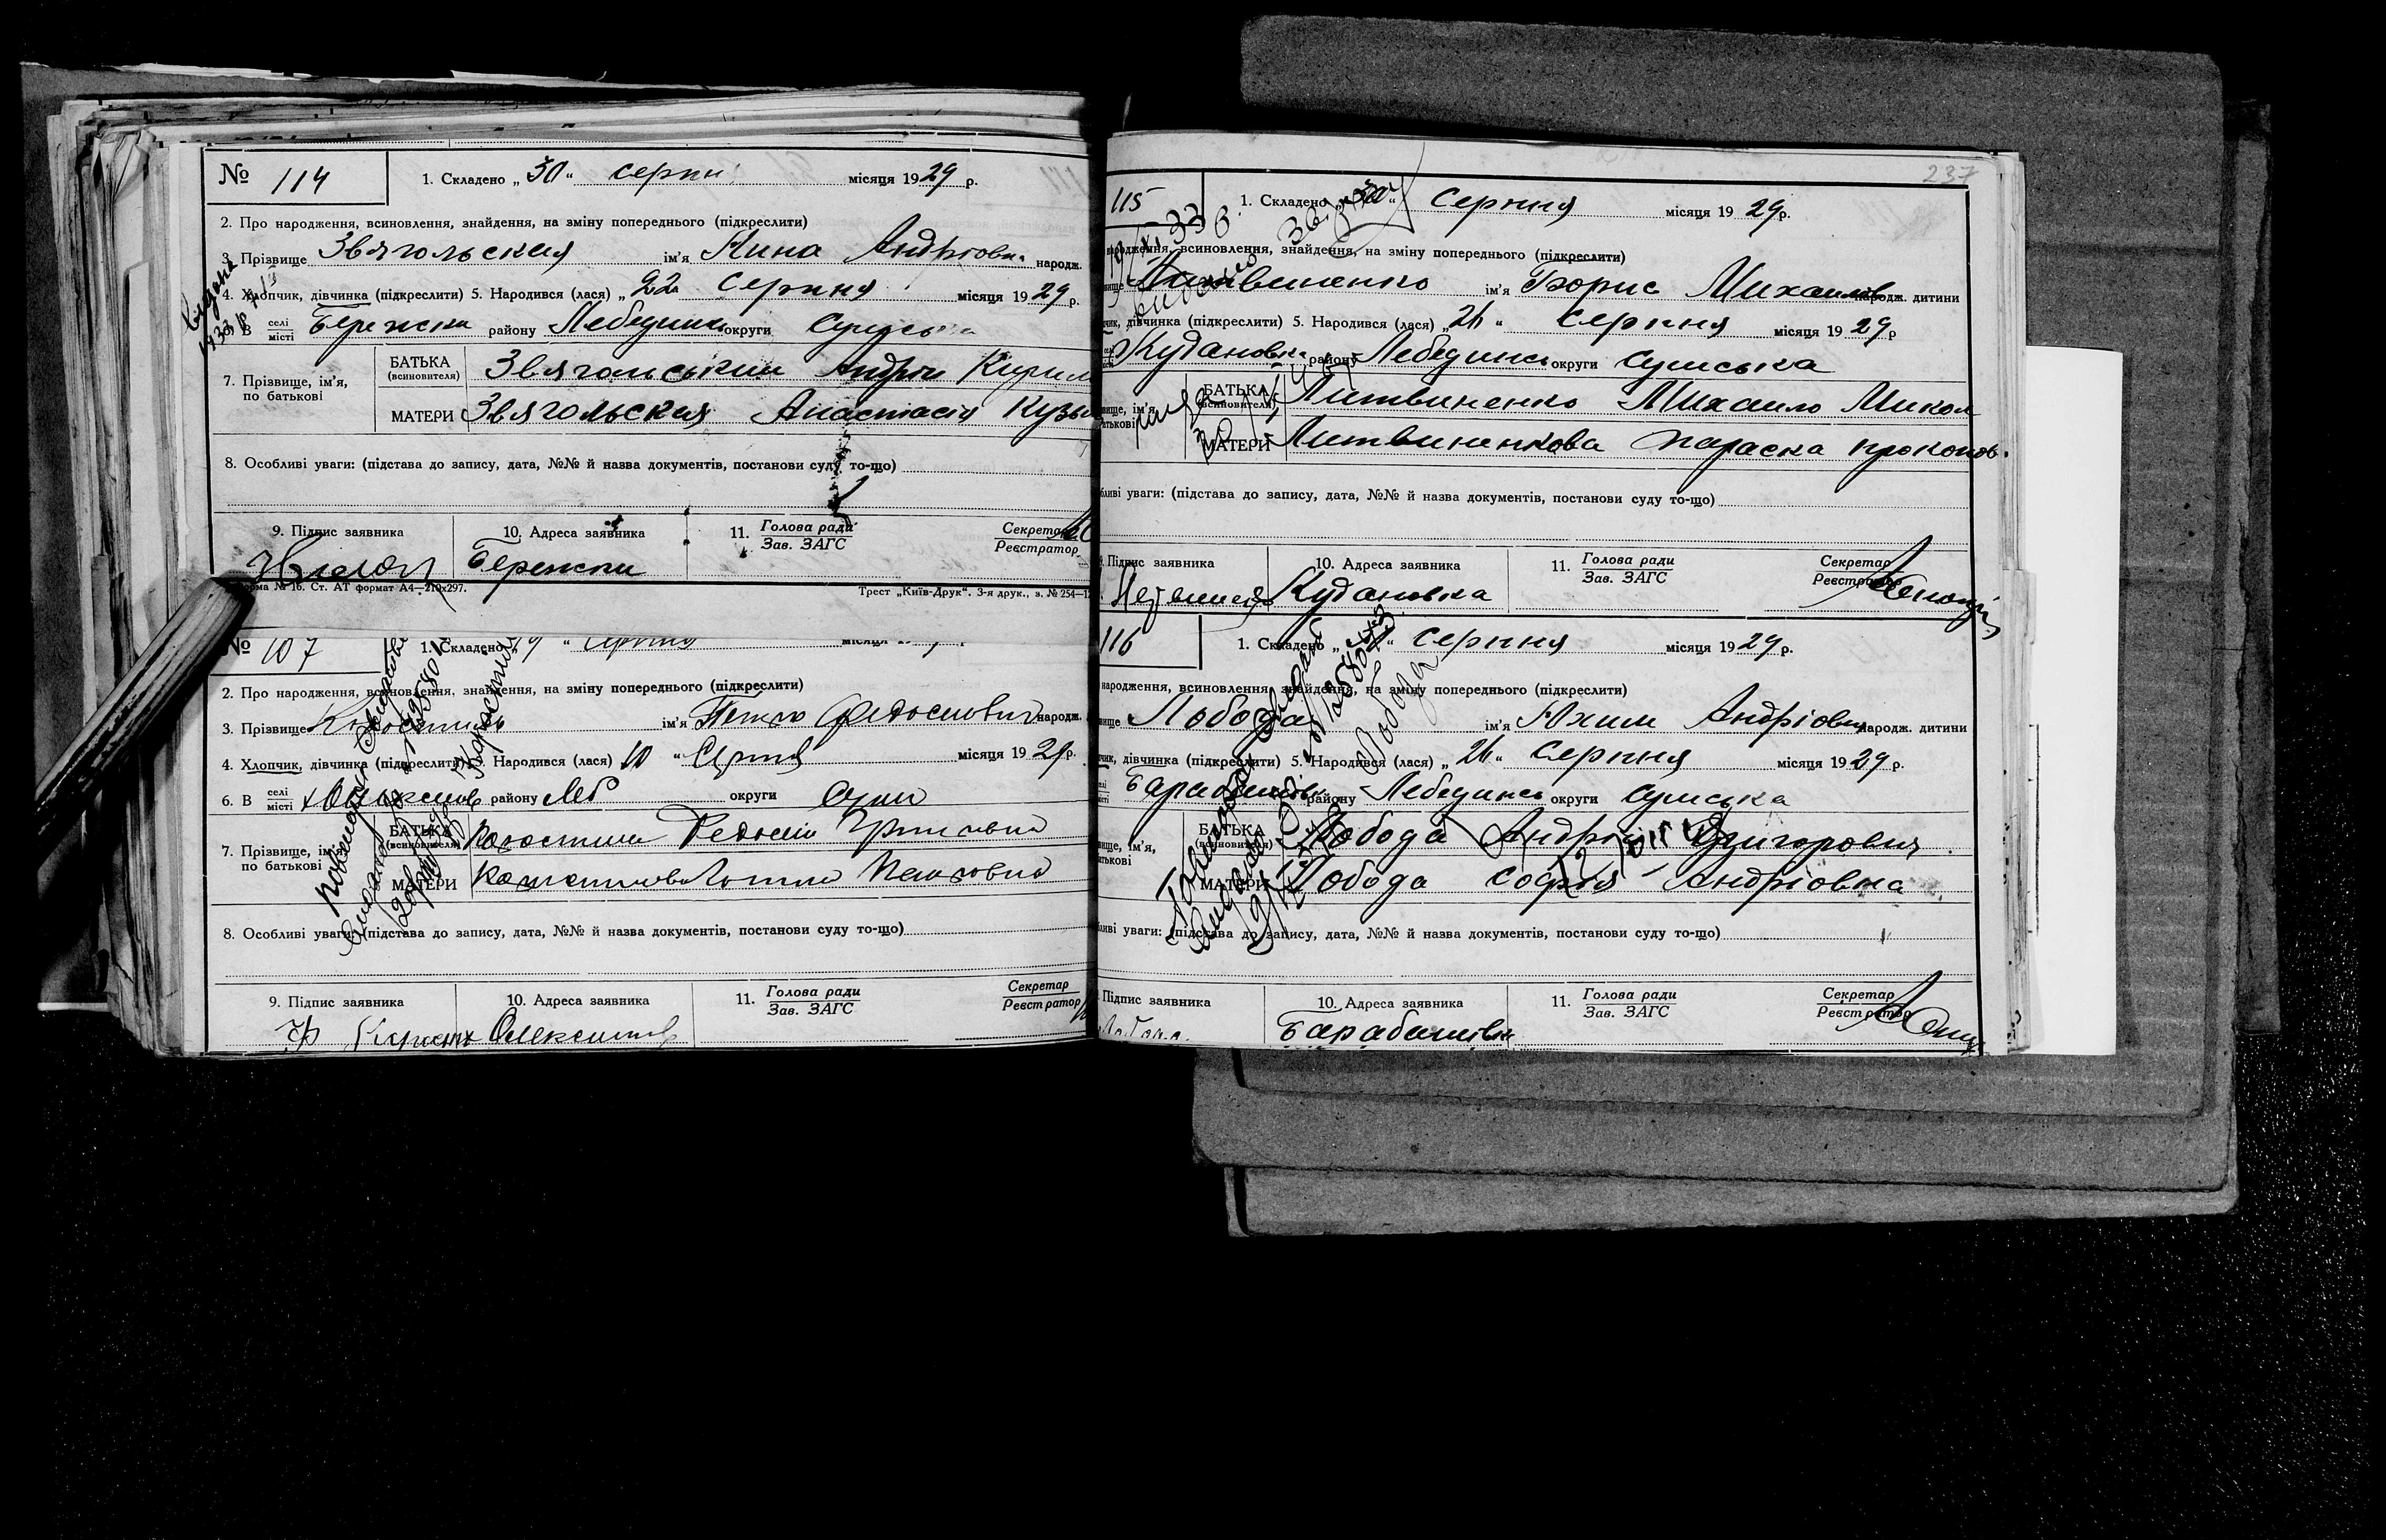 № 114 1. Складено „30“ серпн місяця 1929 р.
2. Про народження, всиновлення, знайдення, на зміну попереднього (підкреслити)
3. Прізвище Звягольская ім'я Нина Андріовна народж.
4. Хлопчик, дівчинка (підкреслити) 5. Народився (лася) „22 Серпня місяця 1929 р.
6. В селі місті Бережки району Лебединс округи Сумська
7. Прізвище, ім'я, по батькові
БАТЬКА (всиновителя) Звягольський Андрій Кирил
МАТЕРИ Звягольская Анастасія Кузьм
8. Особливі уваги: (підстава до запису, дата, №№ й назва документів, постанови суду то-що)
9. Підпис заявника 10. Адреса заявника 11. Голова ради Зав. ЗАГС Секретар Реєстратор
Бережки
Форма № 16. Ст. АТ формат А4—210х297. Трест „Київ-Друк“. 3-я друк., з. № 254—1
№ 107 1. Складено „ “ Серпня місяця
2. Про народження, всиновлення, знайдення, на зміну попереднього (підкреслити)
3. Прізвище ім'я Петро Федосиович народж.
4. Хлопчик, дівчинка (підкреслити) 5. Народився (лася) 10 “ Серпня місяця 1929 р.
6. В селі місті району Леб округи Суми
7. Прізвище, ім'я, по батькові
БАТЬКА (всиновителя) Федосій
МАТЕРИ
8. Особливі уваги: (підстава до запису, дата, №№ й назва документів, постанови суду то-що)
9. Підпис заявника 10. Адреса заявника 11. Голова ради Зав. ЗАГС Секретар Реєстратор
237
115 1. Складено „ “ Серпня місяця 1929р.
народження, всиновлення, знайдення, на зміну попереднього (підкреслити)
Литвиненко ім'я Борис Михайлов народж. дитини
дівчинка (підкреслити) 5. Народився (лася) „26“ Серпня місяця 1929р
Кудановка району Лебединс округи Сумська
БАТЬКА (всиновителя) Литвиненко Михаило Микол
МАТЕРИ Литвиненкова Параска Прокопов.
уваги: (підстава до запису, дата, №№ й назва документів, постанови суду то-що)
Підпис заявника 10. Адреса заявника 11. Голова ради Зав. ЗАГС Секретар Реєстратор
Кудановка
116 1. Складено „ “ Серпня місяця 1929 р.
народження, всиновлення, знайдення, на зміну попереднього (підкреслити)
Лобода ім'я Юхим Андріович народж. дитини
дівчинка (підкреслити) 5. Народився (лася) „26“ Серпня місяця 1929 р.
Барабашівк району Лебединс округи Сумська
БАТЬКА (всиновителя) Лобода Андрій Григорович
МАТЕРИ Лобода Софія Андріовна
уваги: (підстава до запису, дата, №№ й назва документів, постанови суду то-що)
Підпис заявника 10. Адреса заявника 11. Голова ради Зав. ЗАГС Секретар Реєстратор
Лобода Барабашівк